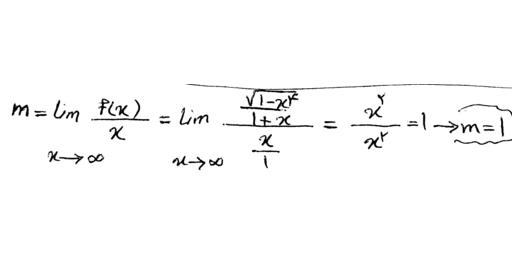 m = lim f(x)/x = lim (√(1-x²)/(1+x))/(x/1) = x²/x² = 1 → m = 1
x→∞ x→∞